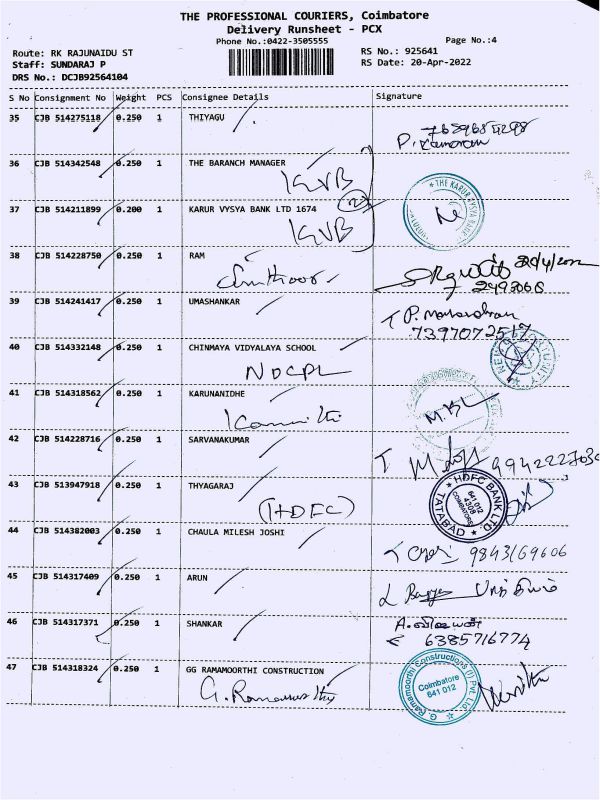 THE PROFESSIONAL COURIERS, Coimbatore
Delivery Runsheet - PCX
Phone No.:0422-3505555
Page No.:4
Route: RK RAJUNAIDU ST
RS No.: 925641
Staff: SUNDARAJ P
RS Date: 20-Apr-2022
DRS No.: DCJB92564104
S No Consignment No Weight PCS Consignee Details Signature
35 CJB 514275118 0.250 1 THIYAGU
36 CJB 514342548 0.250 1 THE BARANCH MANAGER
KVB
THE KARUR VYSYA BANK
37 CJB 514211899 0.200 1 KARUR VYSYA BANK LTD 1674
KVB
38 CJB 514228750 0.250 1 RAM
39 CJB 514241417 0.250 1 UMASHANKAR
7397072517
40 CJB 514332148 0.250 1 CHINMAYA VIDYALAYA SCHOOL
NDCPL
41 CJB 514318562 0.250 1 KARUNANIDHE
42 CJB 514228716 0.250 1 SARVANAKUMAR
43 CJB 513947918 0.250 1 THYAGARAJ
(HDFC)
HDFC BANK LTD.
TATABAD
COIMBATORE
641 012
44 CJB 514382003 0.250 1 CHAULA MILESH JOSHI
9843169606
45 CJB 514317409 0.250 1 ARUN
46 CJB 514317371 0.250 1 SHANKAR
6385716774
47 CJB 514318324 0.250 1 GG RAMAMOORTHI CONSTRUCTION
G. Ramamoorthi Constructions (I) Pvt. Ltd.
Coimbatore
641 012